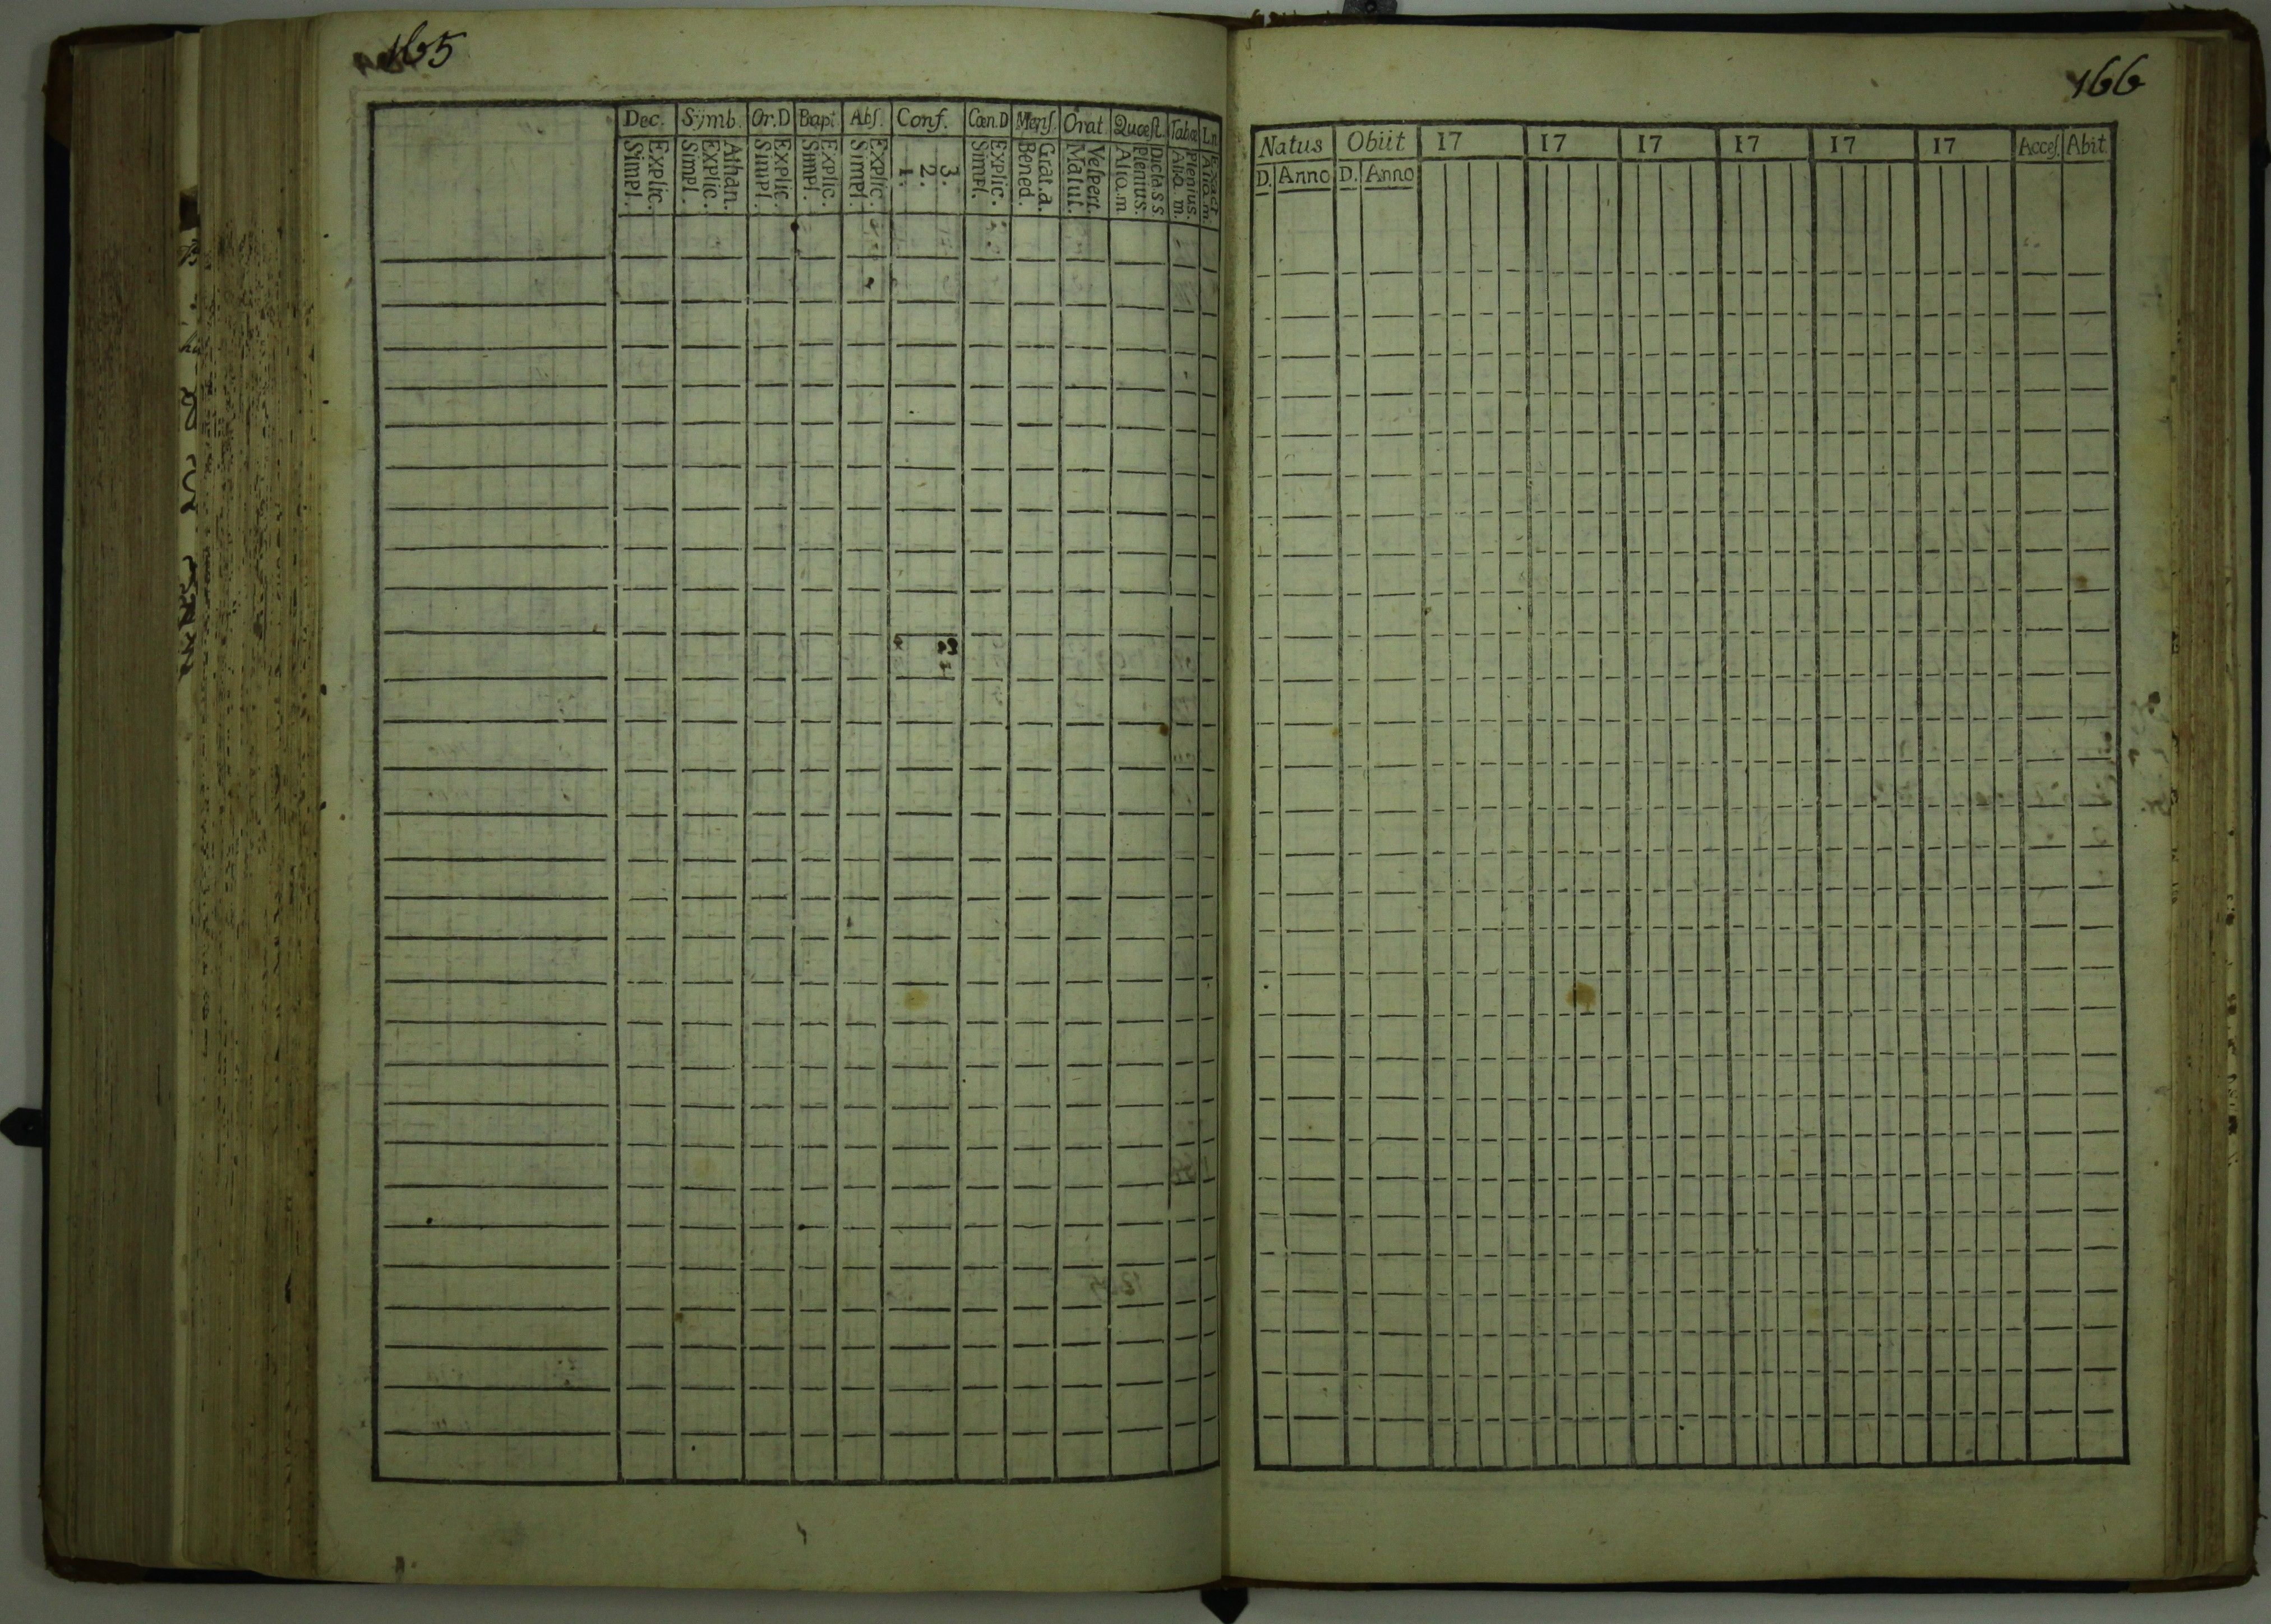 165
Dec. Symb. Or.D Bapt Abſ. Conf. Cœn.D Menſ. Orat. Quæſt. Tabœ
Explic. Simpl.
Athan. Explic. Simpl.
Explic. Simpl.
Explic. Simpl.
Explic. Simpl.
3. 2. 1.
Explic. Simpl.
Grat.a. Bened.
Veſpert. Matut.
Dicta s s Plenius. Alio. m
Plenius. Alio. m.
Exact Alio. m.
166
Natus Obiit 17 17 17 17 17 17 Acceſ. Abit.
D. Anno D. Anno